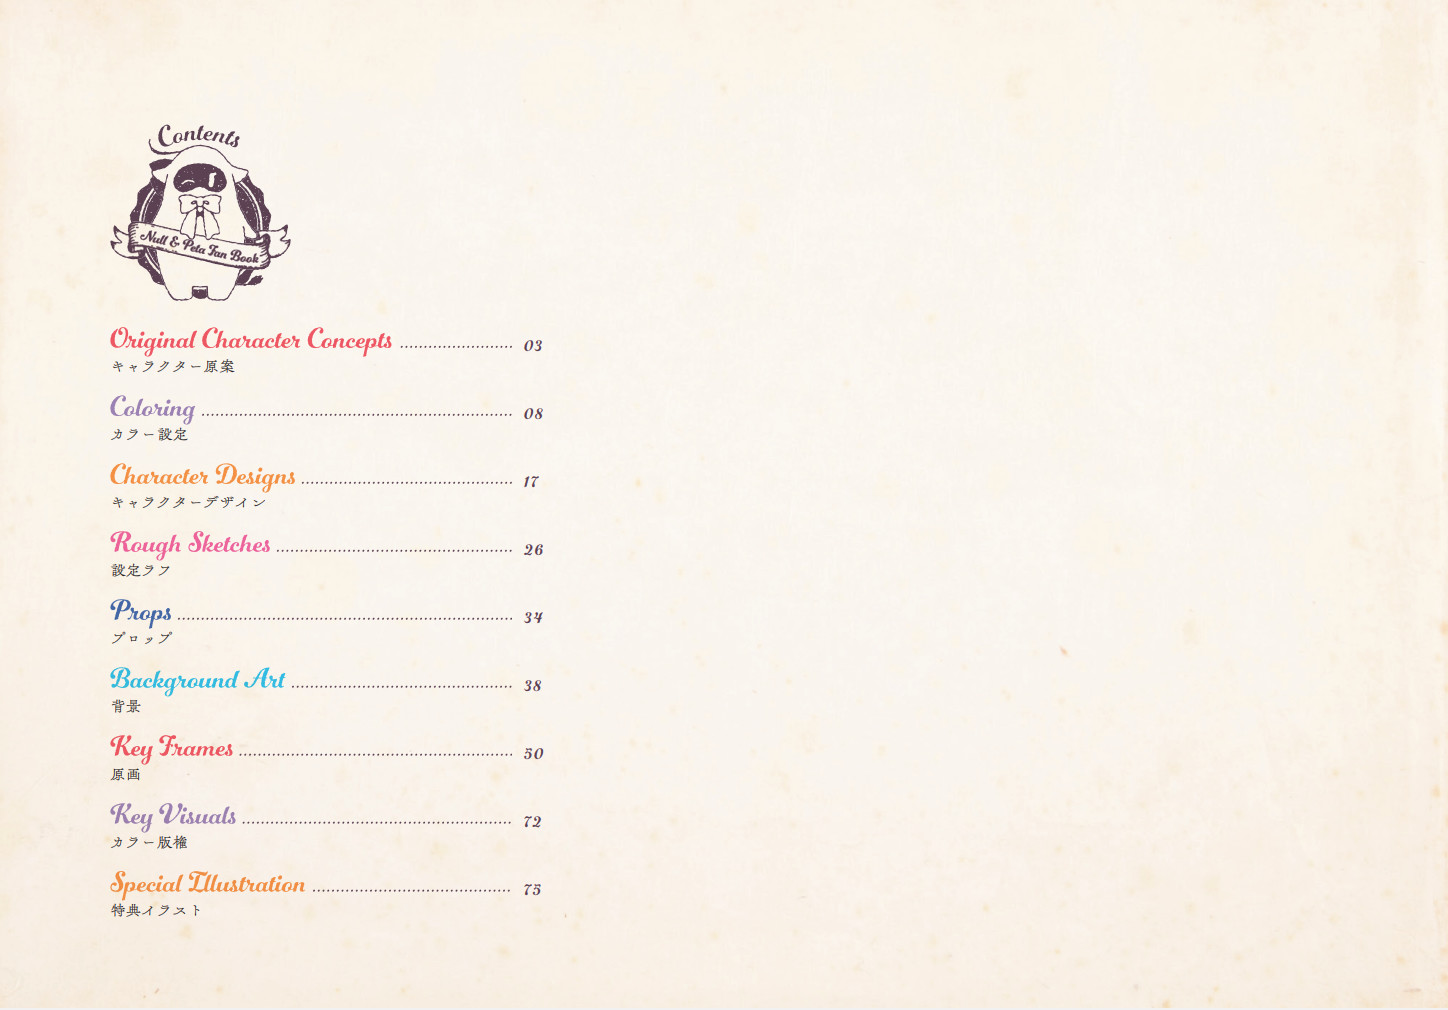 Contents
Null & Peta Fan Book
Original Character Concepts ........................ 03
キャラクター原案
Coloring ........................ 08
カラー設定
Character Designs ........................ 17
キャラクターデザイン
Rough Sketches ........................ 26
設定ラフ
Props ........................ 34
プロップ
Background Art ........................ 38
背景
Key Frames ........................ 50
原画
Key Visuals ........................ 72
カラー版権
Special Illustration ........................ 75
特典イラスト